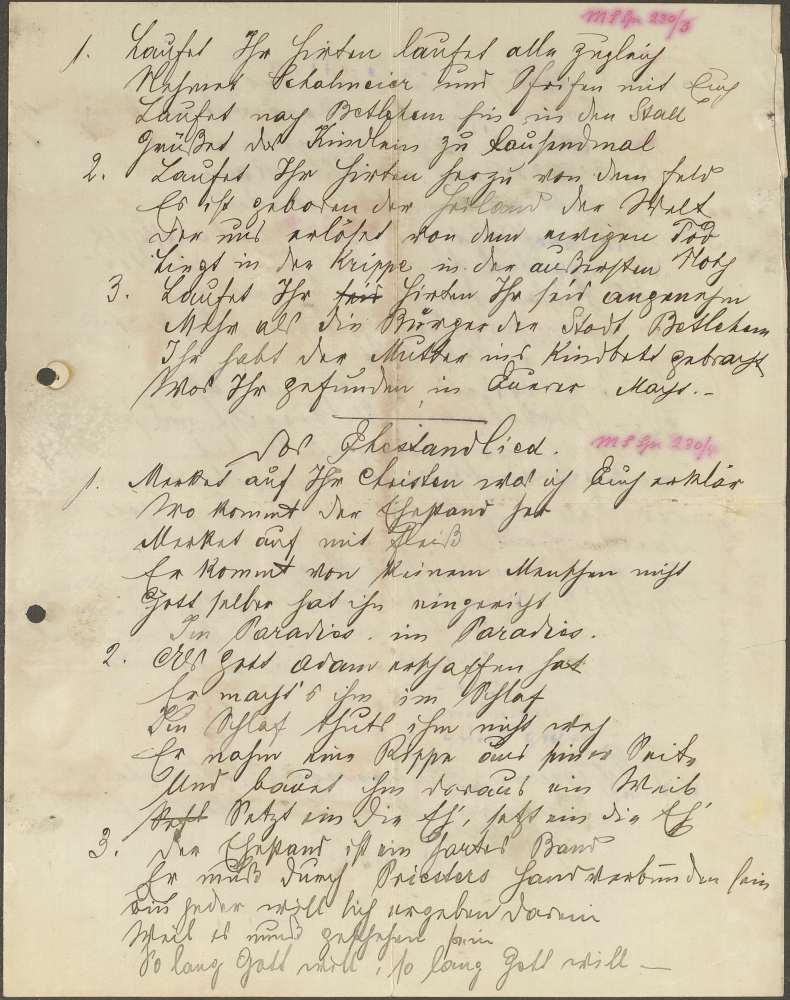 MS Gr 230/3
1. Laufet Ihr Hirten laufet alle zugleich
Nehmet Schalmeier und Pfeifen mit Euch
Laufet nach Betlehem hin in den Stall
Grüßet das Kindlein zu tausendmal
2. Laufet Ihr Hirten herzu von dem Feld
Es ist geboren der Heiland der Welt
Der uns erlöset von dem ewigen Tod
Liegt in der Krippe in der äußersten Noth
3. Laufet Ihr seid Hirten Ihr seid angenehm
Mehr als die Bürger der Stadt Betlehem
Ihr habt der Mutter ins Kindbett gebracht
Was Ihr gefunden in Eurer Macht.-
Das Ehestandlied.
MS Gr 230/4
1. Merket auf Ihr Christen was ich Euch erklär
Wo kommt der Ehestand her
Merket auf mit Fleiß
Er kommt von keinem Menschen nicht
Gott selber hat ihn eingericht
Im Paradies. im Paradies.
2. Als Gott Adam erschaffen hat
Er macht's ihm im Schlaf
Im Schlaf thuts ihm nicht weh
Er nahm eine Rippe aus seiner Seite
Und bauet ihm daraus ein Weib
Setzt ein die Eh', setzt ein die Eh'
3. Der Ehestand ist ein hartes Band
Er muß durch Priesters Hand verbunden sein
Ein jeder will sich ergeben darein
Weil es muß geschehen sein
So lang Gott will, so lang Gott will —